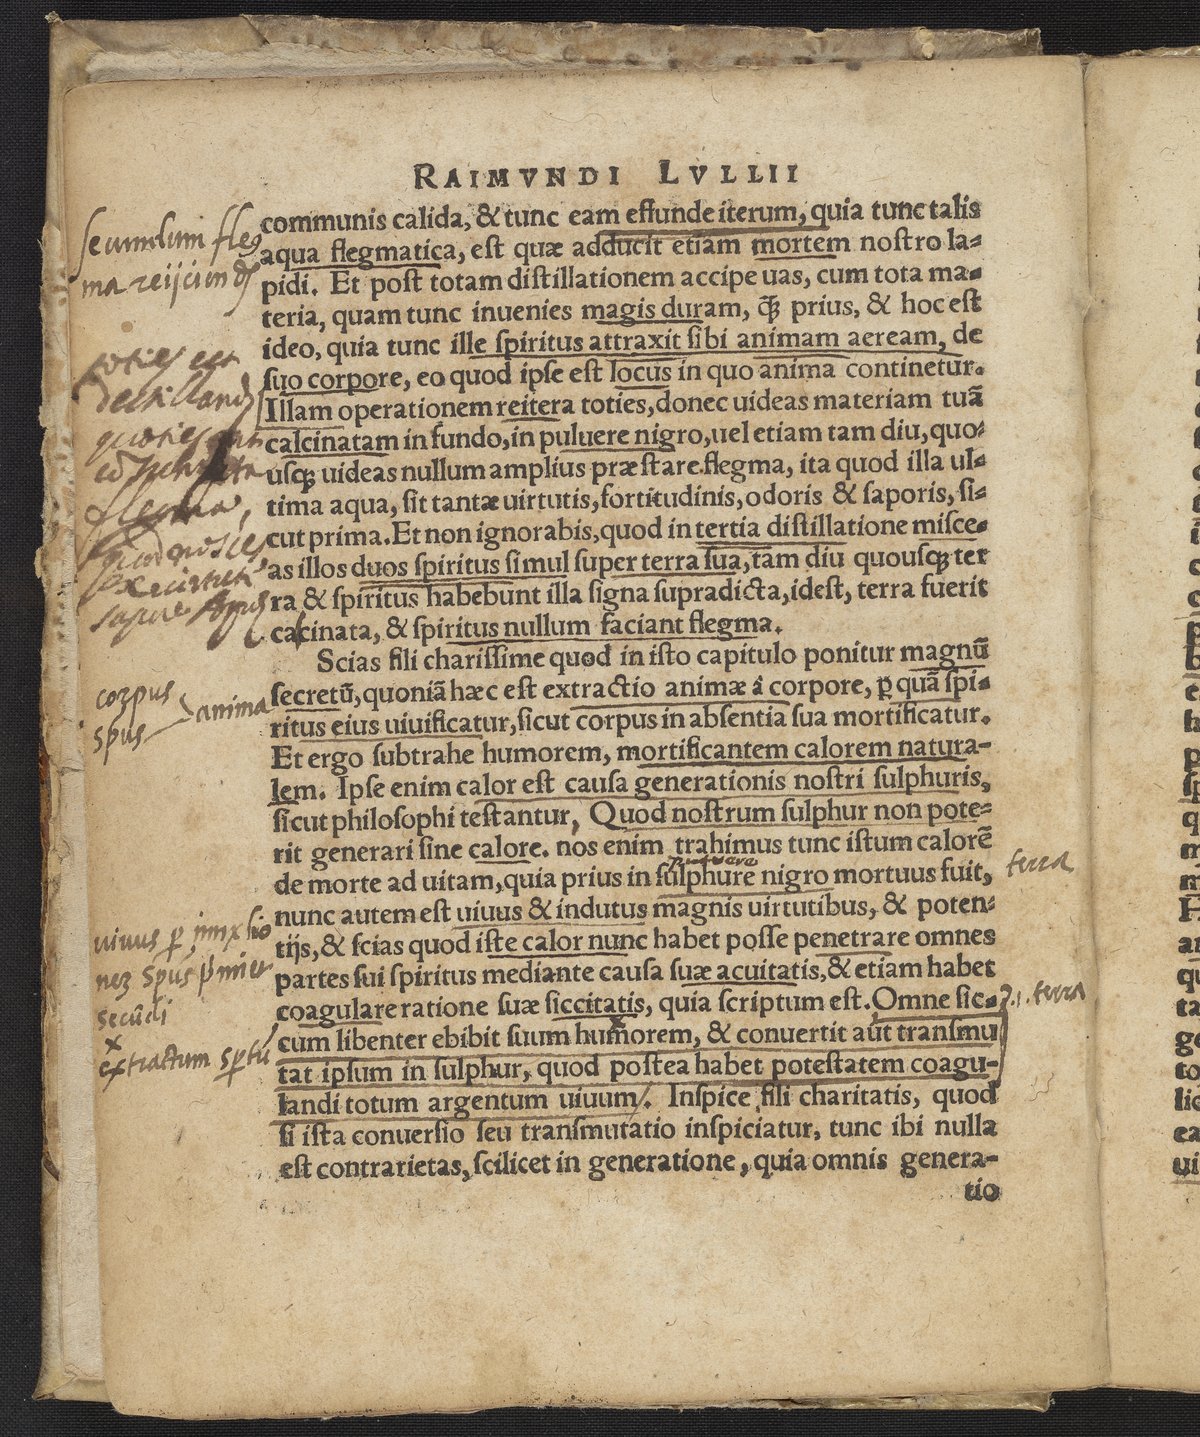 RAIMVNDI LVLLII
communis calida, & tunc eam effunde iterum, quia tunc talis
aqua flegmatica, est quæ adducit etiam mortem nostro la-
pidi. Et post totam distillationem accipe uas, cum tota ma-
teria, quam tunc inuenies magis duram, q̃ꝫ prius, & hoc est
ideo, quia tunc ille spiritus attraxit sibi animam aeream, de
suo corpore, eo quod ipse est locus in quo anima continetur.
Illam operationem reitera toties, donec uideas materiam tuã
calcinatam in fundo, in puluere nigro, uel etiam tam diu, quo-
usqꝫ uideas nullum amplius præstare flegma, ita quod illa ul-
tima aqua, sit tantæ uirtutis, fortitudinis, odoris & saporis, si-
cut prima. Et non ignorabis, quod in tertia distillatione misce-
as illos duos spiritus simul super terra sua, tam diu quousqꝫ ter
ra & spiritus habebunt illa signa supradicta, idest, terra fuerit
calcinata, & spiritus nullum faciant flegma.
Scias fili charissime quod in isto capitulo ponitur magnũ
secretũ, quoniã hæc est extractio animæ à corpore, ꝑ quã spi-
ritus eius uiuificatur, sicut corpus in absentia sua mortificatur.
Et ergo subtrahe humorem, mortificantem calorem natura-
lem. Ipse enim calor est causa generationis nostri sulphuris,
sicut philosophi testantur, Quod nostrum sulphur non pote-
rit generari sine calore. nos enim trahimus tunc istum calorẽ
puluere
de morte ad uitam, quia prius in sulphure nigro mortuus fuit,
nunc autem est uiuus & indutus magnis uirtutibus, & poten-
tijs, & scias quod iste calor nunc habet posse penetrare omnes
partes sui spiritus mediante causa suæ acuitatis, & etiam habet
coagulare ratione suæ siccitatis, quia scriptum est. Omne sic-
cum libenter ebibit suum humorem, & conuertit aut transmu
tat ipsum in sulphur, quod postea habet potestatem coagu-
landi totum argentum uiuum. Inspice fili charitatis, quod
si ista conuersio seu transmutatio inspiciatur, tunc ibi nulla
est contrarietas, scilicet in generatione, quia omnis genera-
tio
fleg
ma
toties
flegma,
corpus
spus
anima
uiuus ꝑ
secũdi
extractum
terra
terra